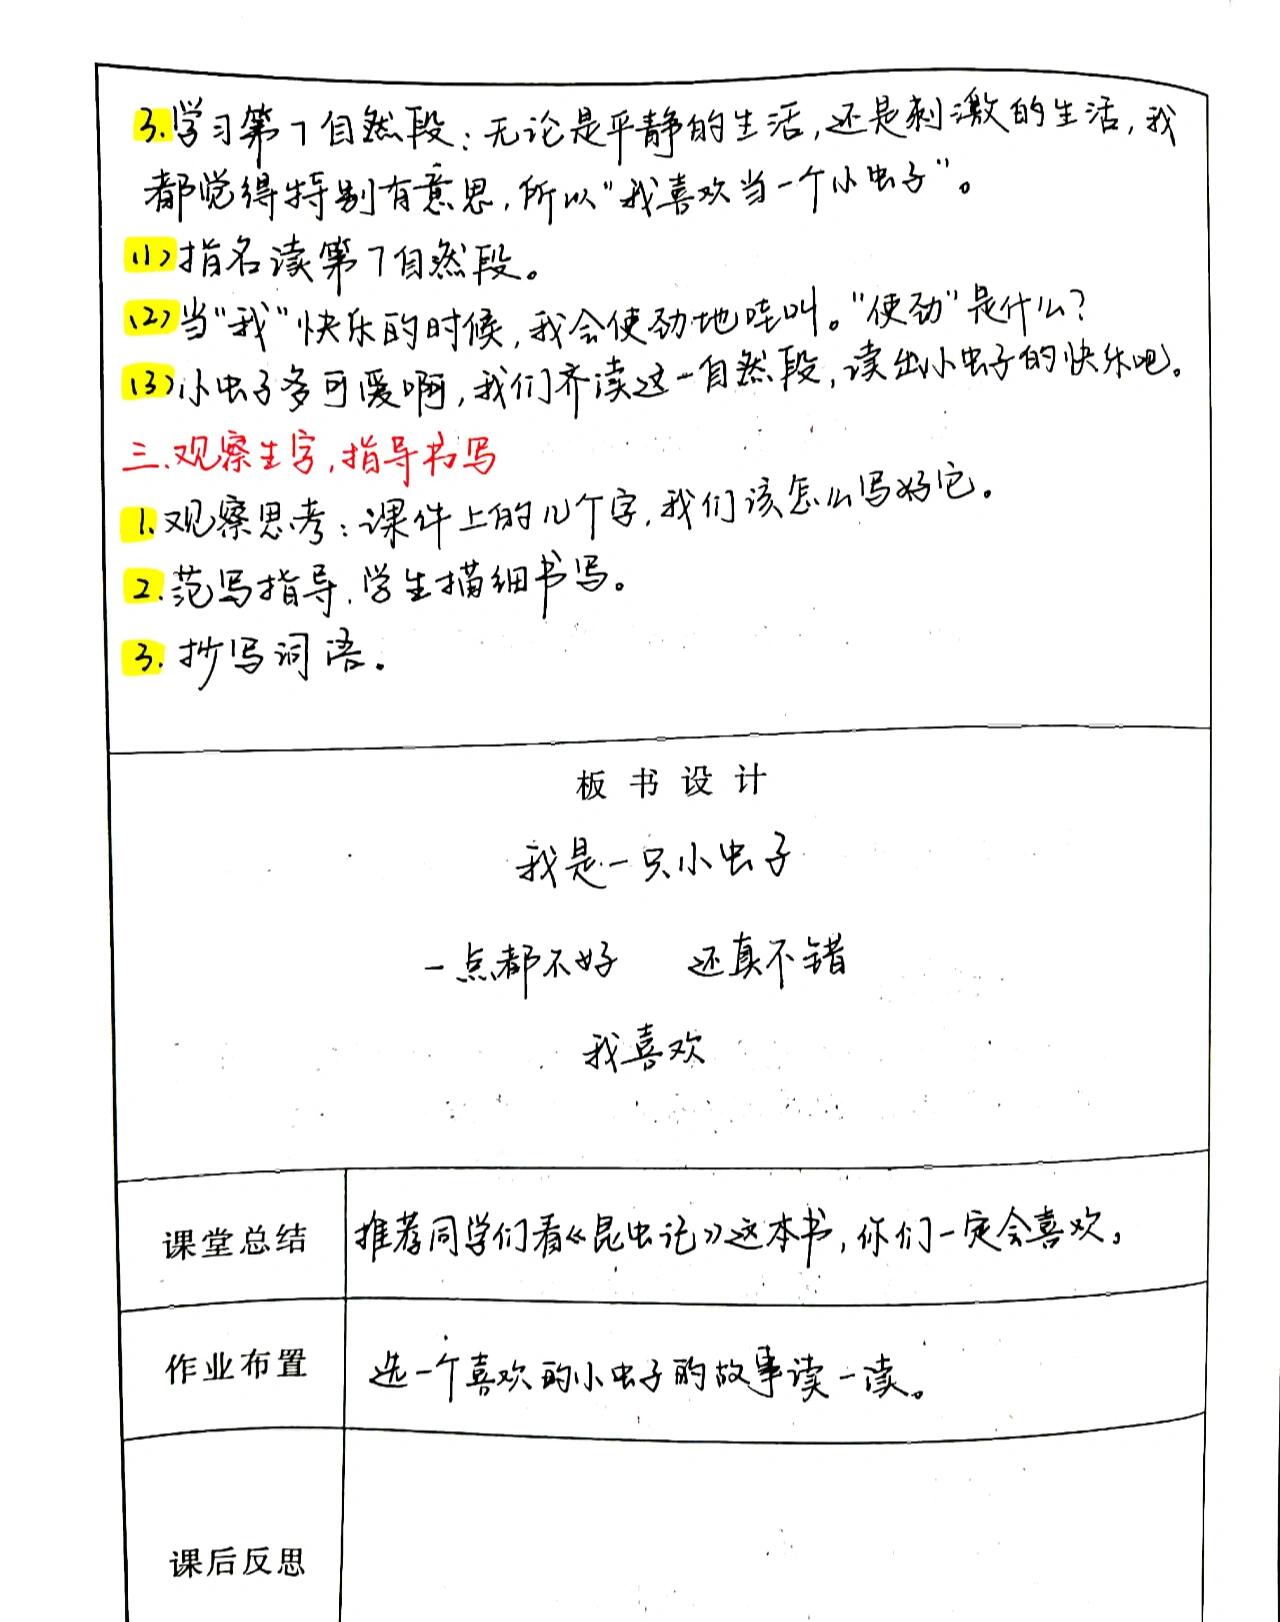 3.学习第7自然段：无论是平静的生活，还是刺激的生活，我
都觉得特别有意思，所以“我喜欢当一个小虫子”。
(1)指名读第7自然段。
(2)当“我”快乐的时候，我会使劲地哇叫。“使劲”是什么？
(3)小虫子多可爱啊，我们齐读这一自然段，读出小虫子的快乐吧。
三.观察生字，指导书写
1.观察思考：课件上的几个字，我们该怎么写好它。
2.范写指导，学生描细书写。
3.抄写词语。
板书设计
我是一只小虫子
一点都不好 还真不错
我喜欢
课堂总结 推荐同学们看《昆虫记》这本书，你们一定会喜欢。
作业布置 选一个喜欢的小虫子的故事读一读。
课后反思